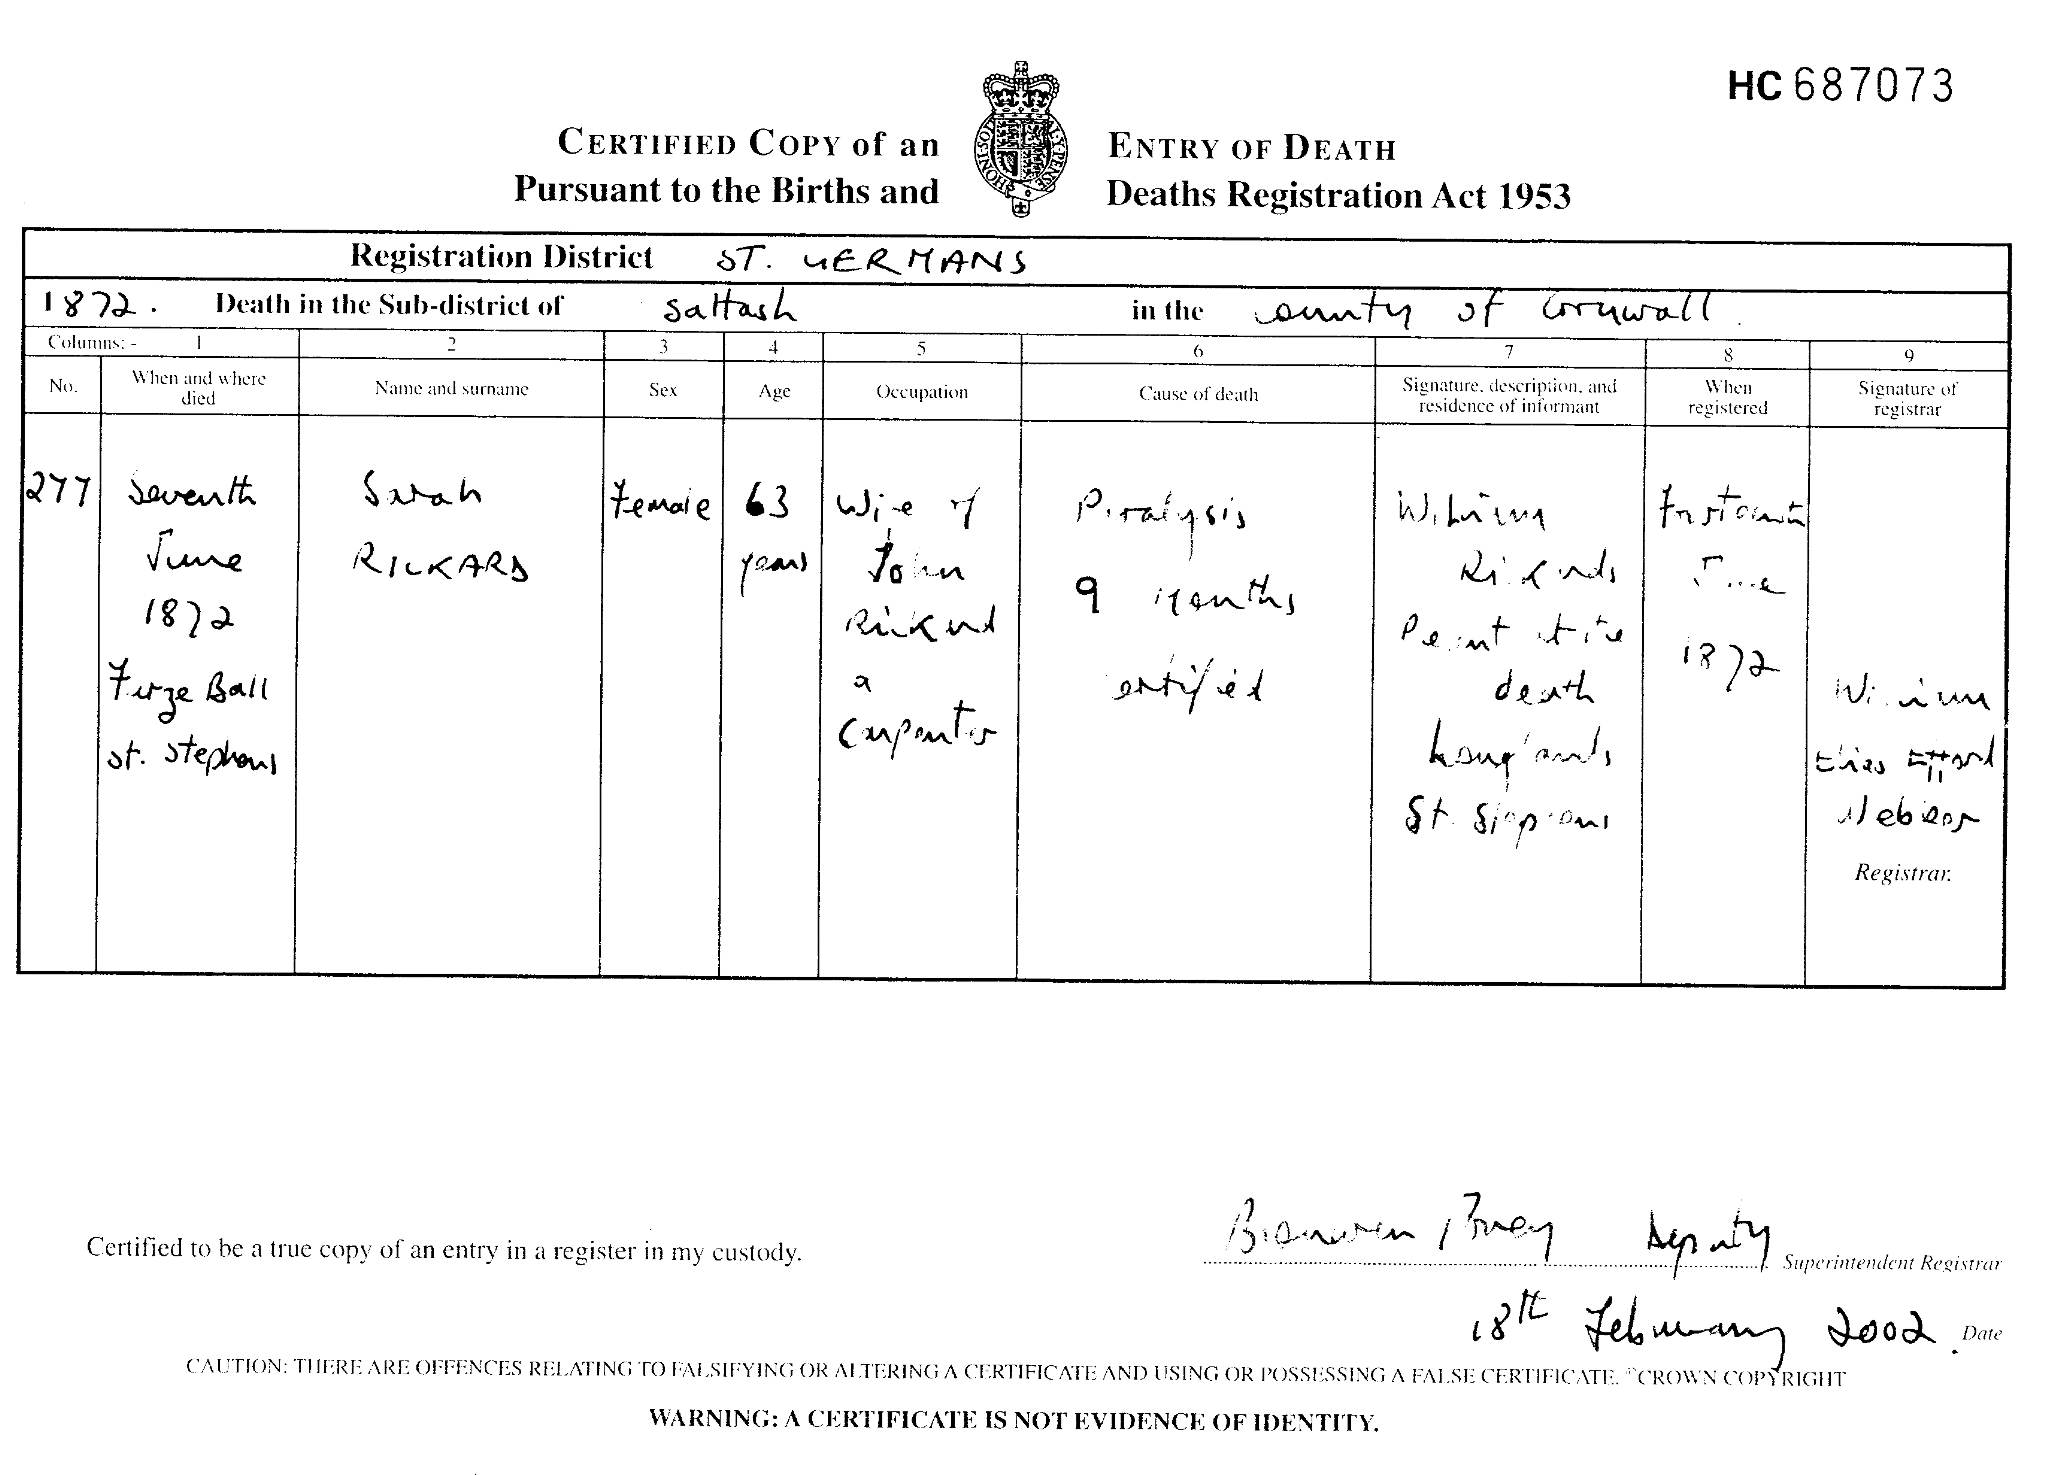 HC 687073
CERTIFIED COPY of an ENTRY OF DEATH
Pursuant to the Births and Deaths Registration Act 1953
HONI SOIT
Registration District ST. GERMANS
1872. Death in the Sub-district of Saltash in the County of Cornwall
Columns:- 1 2 3 4 5 6 7 8 9
No.
When and where
died
Name and surname
Sex
Age
Occupation
Cause of death
Signature, description, and
residence of informant
When
registered
Signature of
registrar
277
Seventh
June
1872
Furze Ball
St. Stephens
Sarah
RICKARD
Female
63
years
Wife of
John
Rickard
a
Carpenter
Paralysis
9 Months
Certified
William
Rickards
Present at the
death
Longlands
St. Stephens
June
1872
William
Elias
Registrar.
Certified to be a true copy of an entry in a register in my custody.
Deputy Superintendent Registrar
18th February 2002. Date
CAUTION: THERE ARE OFFENCES RELATING TO FALSIFYING OR ALTERING A CERTIFICATE AND USING OR POSSESSING A FALSE CERTIFICATE. ©CROWN COPYRIGHT
WARNING: A CERTIFICATE IS NOT EVIDENCE OF IDENTITY.